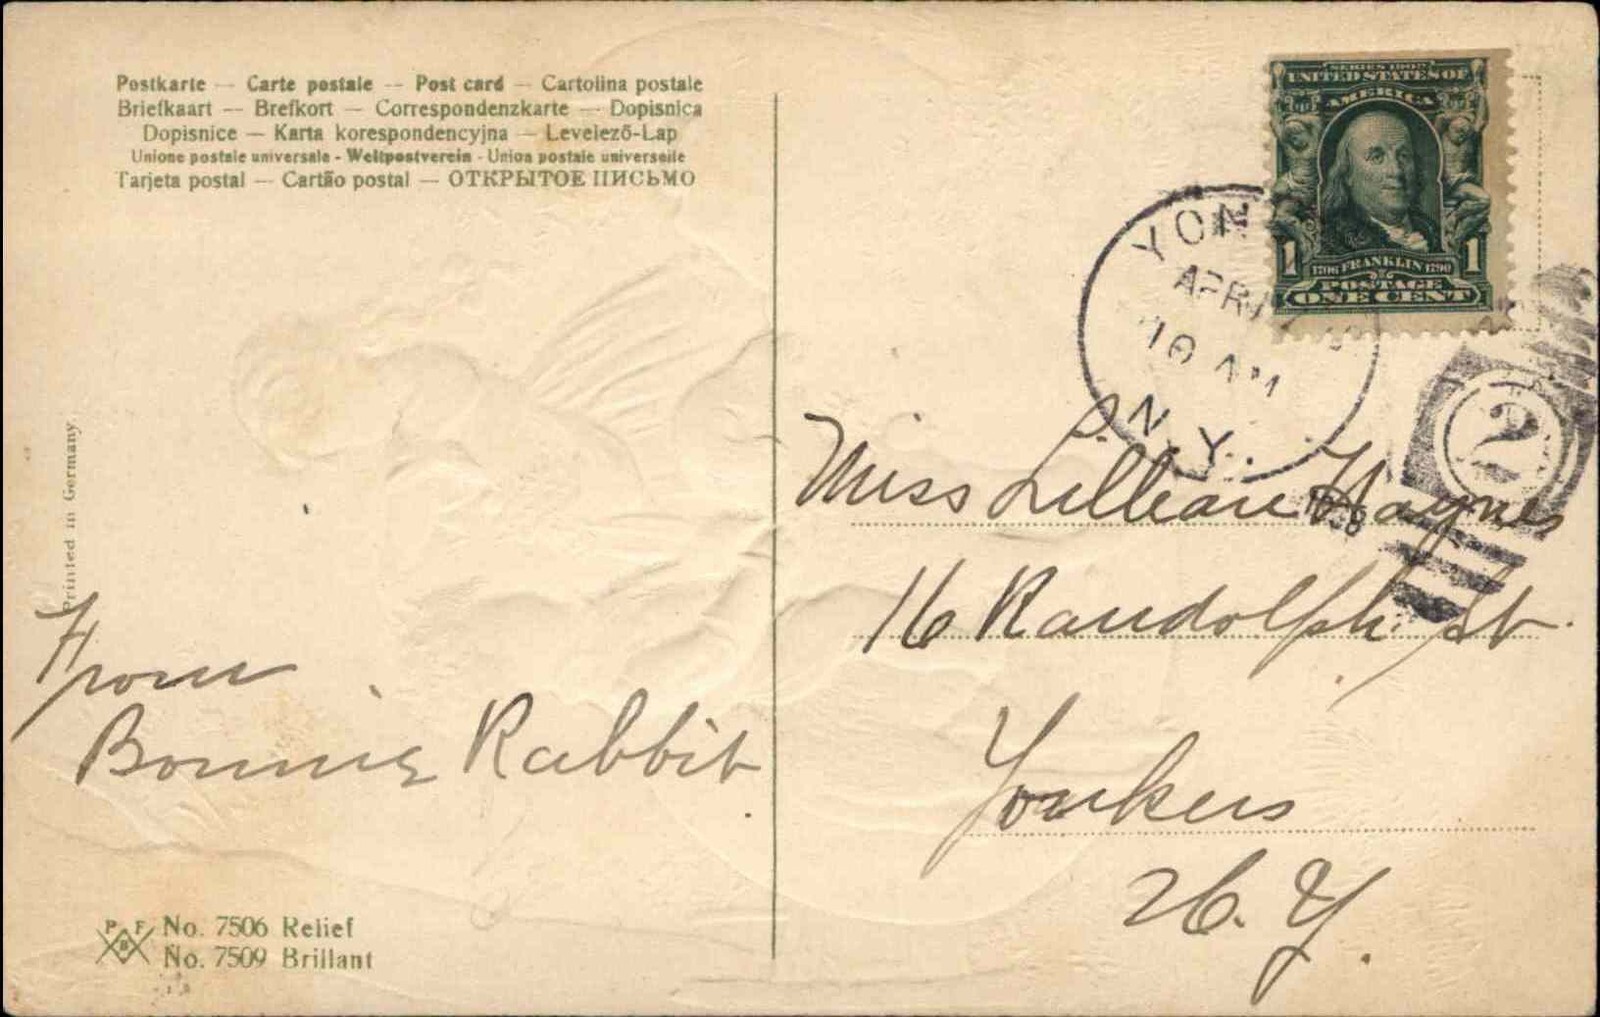 Postkarte — Carte postale — Post card — Cartolina postale
Briefkaart — Brefkort — Correspondenzkarte — Dopisnica
Dopisnice — Karta korespondencyjna — Levelezõ-Lap
Unione postale universale - Weltpostverein - Union postale universelle
Tarjeta postal — Cartão postal — ОТКРЫТОЕ ПИСЬМО
Printed in Germany
From
Bonnie Rabbit
P F B No. 7506 Relief
No. 7509 Brillant
SERIES 1902
UNITED STATES OF
AMERICA
1 1706 FRANKLIN 1790 1
POSTAGE
ONE CENT
YON
APR
10 AM
N.Y.
1908
2
Miss Lillian Haynes
16 Randolph St.
Yonkers
N.Y.